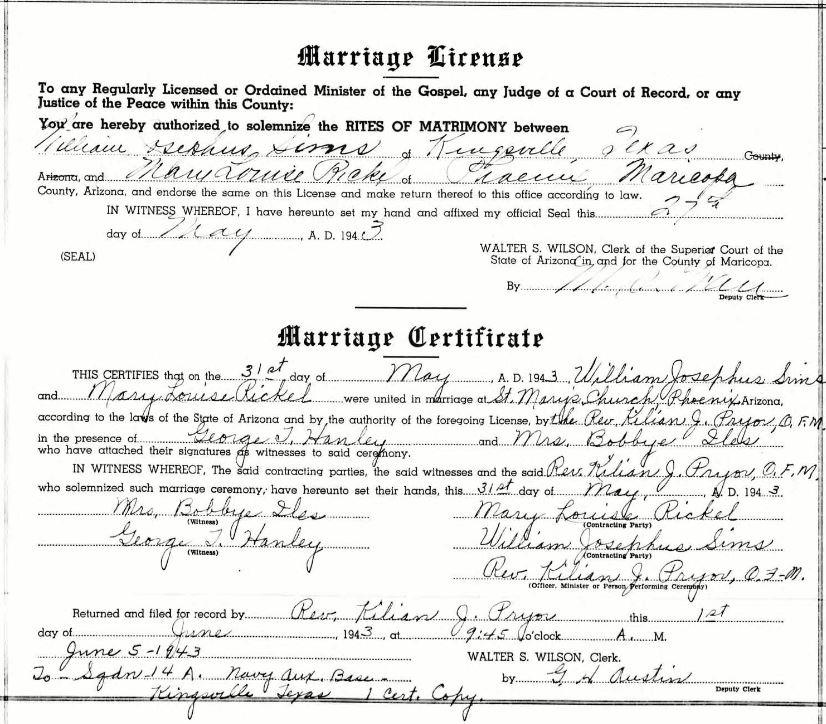 Marriage License
To any Regularly Licensed or Ordained Minister of the Gospel, any Judge of a Court of Record, or any
Justice of the Peace within this County:
You are hereby authorized to solemnize the RITES OF MATRIMONY between
William Josephus Sims of Kingsville, Texas County,
Arizona, and Mary Louise Rickel of Phoenix, Maricopa
County, Arizona, and endorse the same on this License and make return thereof to this office according to law.
IN WITNESS WHEREOF, I have hereunto set my hand and affixed my official Seal this 27th
day of May, A. D. 1943
(SEAL)
WALTER S. WILSON, Clerk of the Superior Court of the
State of Arizona in and for the County of Maricopa.
By
Deputy Clerk
Marriage Certificate
THIS CERTIFIES that on the 31st day of May, A. D. 1943, William Josephus Sims
and Mary Louise Rickel were united in marriage at St. Mary's Church, Phoenix, Arizona,
according to the laws of the State of Arizona and by the authority of the foregoing License, by the Rev. Kilian J. Pryor, O.F.M.
in the presence of George T. Hanley and Mrs. Bobbye Iles
who have attached their signatures as witnesses to said ceremony.
IN WITNESS WHEREOF, The said contracting parties, the said witnesses and the said Rev. Kilian J. Pryor, O.F.M.
who solemnized such marriage ceremony, have hereunto set their hands, this 31st day of May, A. D. 1943
Mrs. Bobbye Iles Mary Louise Rickel
(Witness) (Contracting Party)
George T. Hanley William Josephus Sims
(Witness) (Contracting Party)
Rev. Kilian J. Pryor, O.F.M.
(Officer, Minister or Person Performing Ceremony)
Returned and filed for record by Rev. Kilian J. Pryor this 1st
day of June, 1943, at 9:45 o'clock A. M.
June 5-1943 WALTER S. WILSON, Clerk.
To - Sqdn 14 A. Navy Aux. Base - by G H Austin
Deputy Clerk
Kingsville Texas 1 Cert. Copy.